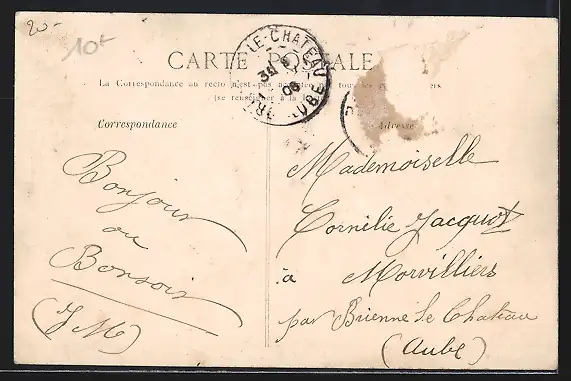 20-
10-
CARTE POSTALE
LE-CHATEAU
AUBE
La Correspondance au recto n'est pas
(se renseigner à la
Correspondance
Adresse
Bonjour
ou
Bonsoir
(J M)
Mademoiselle
Cornélie Jacquot
à Morvilliers
par Brienne le Chateau
(Aube)